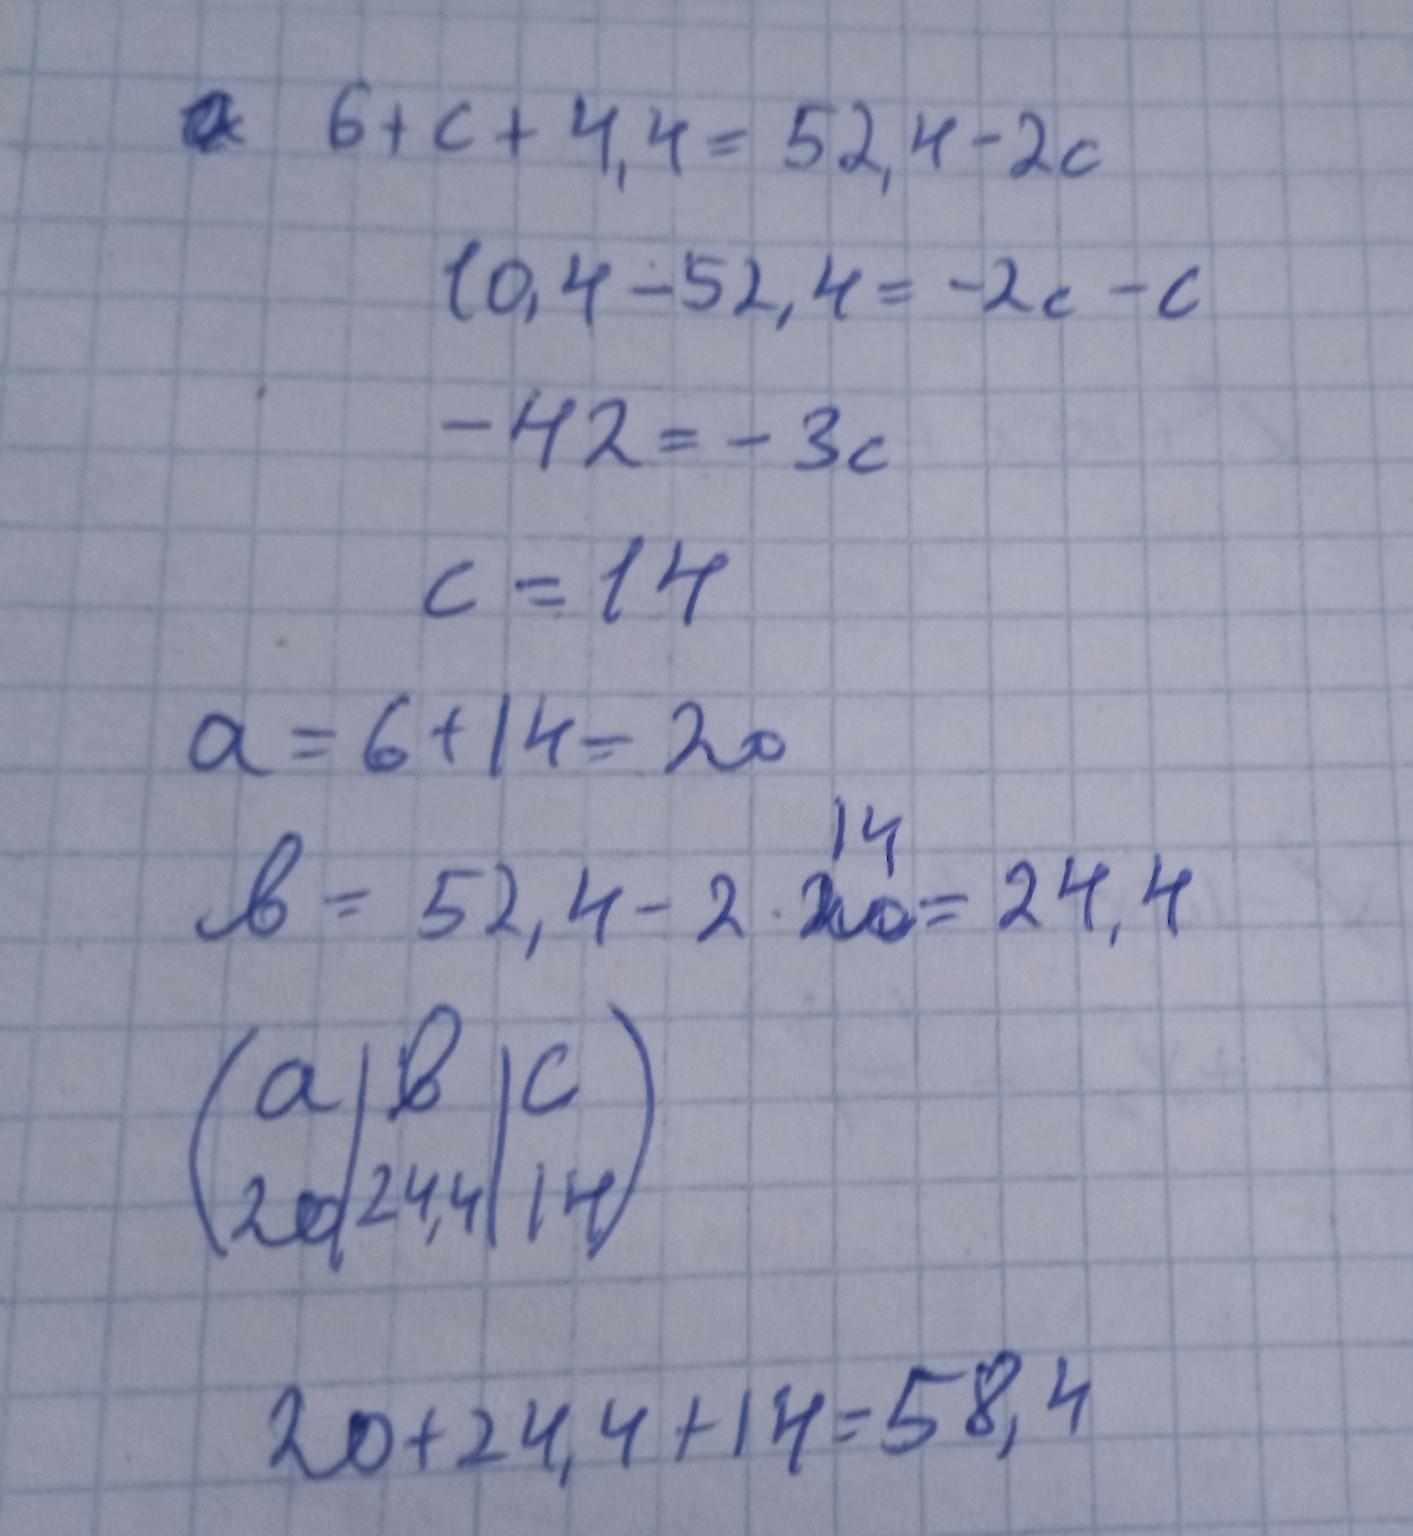 6+c+4,4=52,4-2c
10,4-52,4=-2c-c
-42=-3c
c=14
a=6+14=20
14
в=52,4-2·20=24,4
(a|в|c)
20|24,4|14
20+24,4+14=58,4